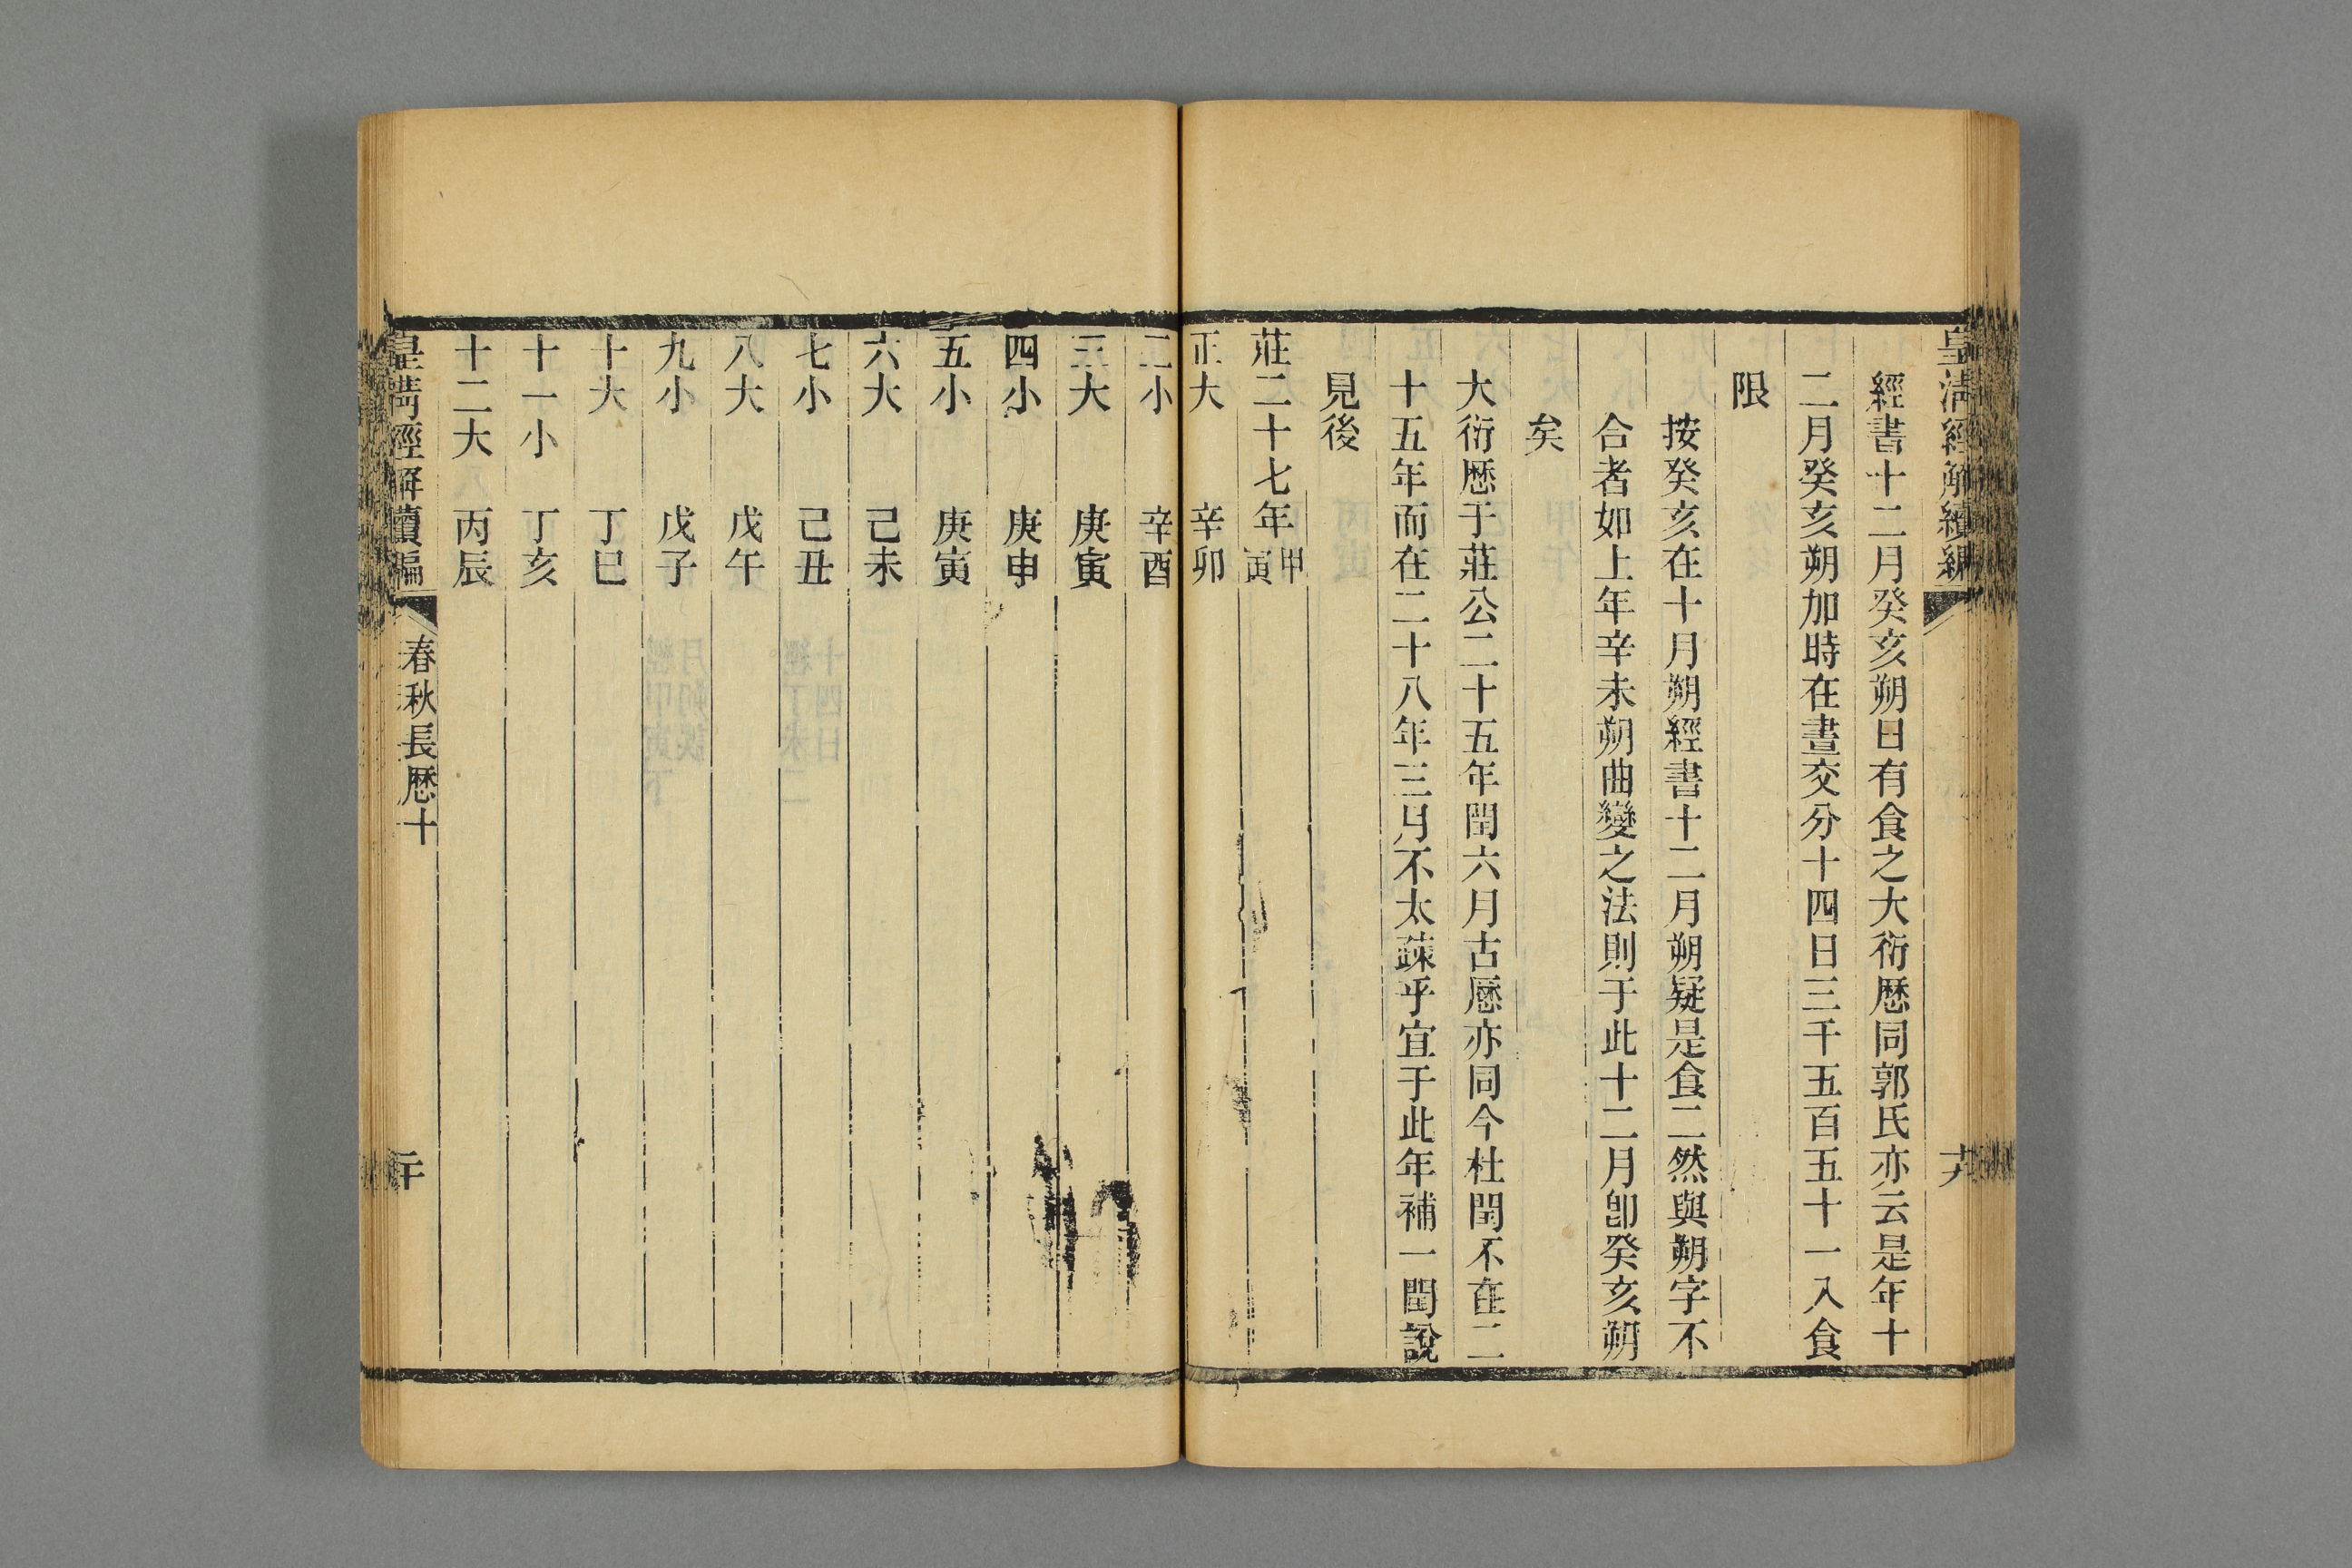 皇清經解續編
十九
經書十二月癸亥朔日有食之大衍厯同郭氏亦云是年十
二月癸亥朔加時在晝交分十四日三千五百五十一入食
限
按癸亥在十月朔經書十二月朔疑是食二然與朔字不
合者如上年辛未朔曲變之法則于此十二月卽癸亥朔
矣
大衍厯于莊公二十五年閏六月古厯亦同今杜閏不在二
十五年而在二十八年三月不太疎乎宜于此年補一閏說
見後
莊二十七年甲寅
正大 辛卯
二小 辛酉
三大 庚寅
四小 庚申
五小 庚寅
六大 己未
七小 己丑
八大 戊午
九小 戊子
十大 丁巳
十一小 丁亥
十二大 丙辰
皇清經解續編
春秋長厯十
二十